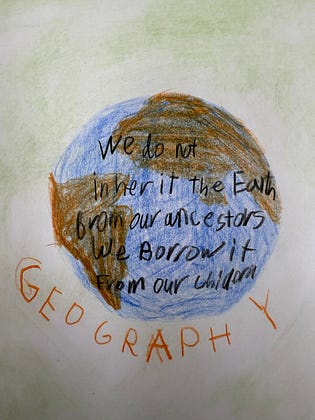 We do not
inherit the Earth
from our ancestors
We Borrow it
From our
GEOGRAPHY